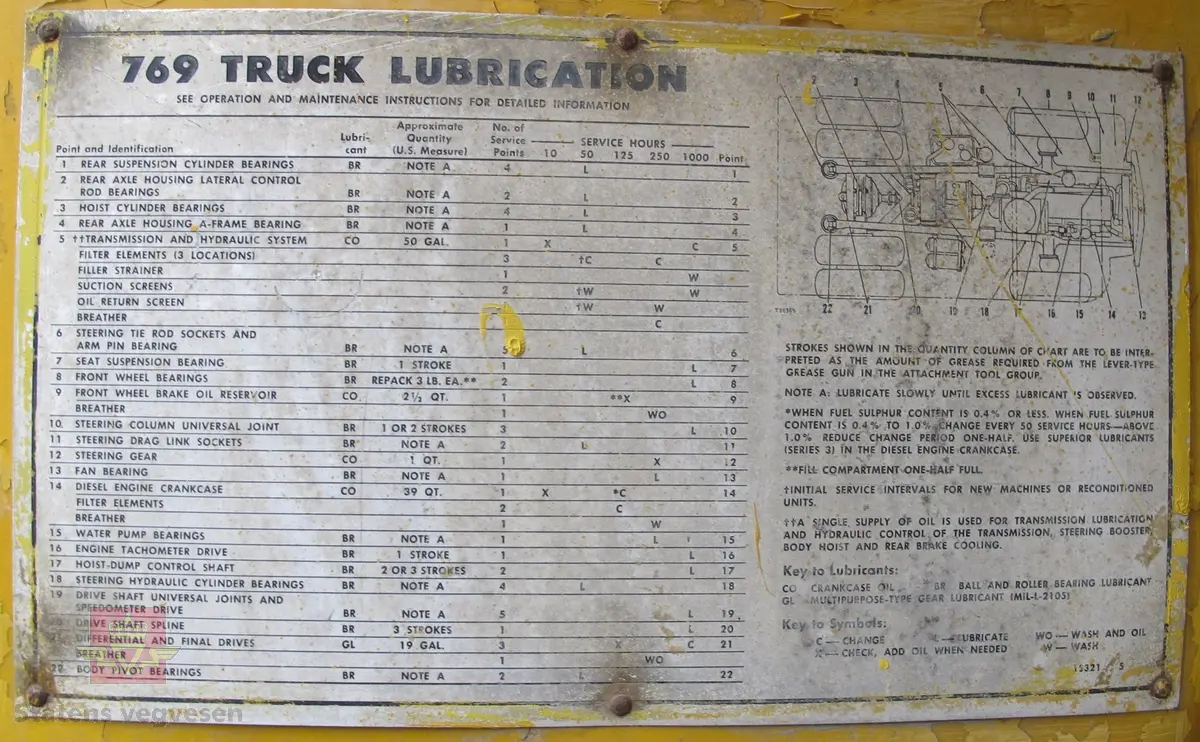 769 TRUCK LUBRICATION
SEE OPERATION AND MAINTENANCE INSTRUCTIONS FOR DETAILED INFORMATION
Point and Identification Lubri-cant Approximate Quantity (U.S. Measure) No. of Service Points SERVICE HOURS 10 50 125 250 1000 Point
1 REAR SUSPENSION CYLINDER BEARINGS BR NOTE A 4 L 1
2 REAR AXLE HOUSING LATERAL CONTROL
ROD BEARINGS BR NOTE A 2 L 2
3 HOIST CYLINDER BEARINGS BR NOTE A 4 L 3
4 REAR AXLE HOUSING A-FRAME BEARING BR NOTE A 1 L 4
5 ††TRANSMISSION AND HYDRAULIC SYSTEM CO 50 GAL. 1 X C 5
FILTER ELEMENTS (3 LOCATIONS) 3 †C C
FILLER STRAINER 1 W
SUCTION SCREENS 2 †W W
OIL RETURN SCREEN †W W
BREATHER C
6 STEERING TIE ROD SOCKETS AND
ARM PIN BEARING BR NOTE A 5 L 6
7 SEAT SUSPENSION BEARING BR 1 STROKE 1 L 7
8 FRONT WHEEL BEARINGS BR REPACK 3 LB. EA.** 2 L 8
9 FRONT WHEEL BRAKE OIL RESERVOIR CO 2½ QT. 1 **X 9
BREATHER 1 WO
10 STEERING COLUMN UNIVERSAL JOINT BR 1 OR 2 STROKES 3 L 10
11 STEERING DRAG LINK SOCKETS BR NOTE A 2 L 11
12 STEERING GEAR CO 1 QT. 1 X 12
13 FAN BEARING BR NOTE A 1 L 13
14 DIESEL ENGINE CRANKCASE CO 39 QT. 1 X *C 14
FILTER ELEMENTS 2 C
BREATHER 1 W
15 WATER PUMP BEARINGS BR NOTE A 1 L 15
16 ENGINE TACHOMETER DRIVE BR 1 STROKE 1 L 16
17 HOIST-DUMP CONTROL SHAFT BR 2 OR 3 STROKES 2 L 17
18 STEERING HYDRAULIC CYLINDER BEARINGS BR NOTE A 4 L 18
19 DRIVE SHAFT UNIVERSAL JOINTS AND
SPEEDOMETER DRIVE BR NOTE A 5 L 19
20 DRIVE SHAFT SPLINE BR 3 STROKES 1 L 20
21 DIFFERENTIAL AND FINAL DRIVES GL 19 GAL. 3 X C 21
BREATHER 1 WO
22 BODY PIVOT BEARINGS BR NOTE A 2 L 22
1 2 3 4 5 6 7 8 9 10 11 12
22 21 20 19 18 17 16 15 14 13
STROKES SHOWN IN THE QUANTITY COLUMN OF CHART ARE TO BE INTER-
PRETED AS THE AMOUNT OF GREASE REQUIRED FROM THE LEVER-TYPE
GREASE GUN IN THE ATTACHMENT TOOL GROUP.
NOTE A: LUBRICATE SLOWLY UNTIL EXCESS LUBRICANT IS OBSERVED.
*WHEN FUEL SULPHUR CONTENT IS 0.4% OR LESS. WHEN FUEL SULPHUR
CONTENT IS 0.4% TO 1.0% CHANGE EVERY 50 SERVICE HOURS—ABOVE
1.0% REDUCE CHANGE PERIOD ONE-HALF. USE SUPERIOR LUBRICANTS
(SERIES 3) IN THE DIESEL ENGINE CRANKCASE.
**FILL COMPARTMENT ONE-HALF FULL.
†INITIAL SERVICE INTERVALS FOR NEW MACHINES OR RECONDITIONED
UNITS.
††A SINGLE SUPPLY OF OIL IS USED FOR TRANSMISSION LUBRICATION
AND HYDRAULIC CONTROL OF THE TRANSMISSION, STEERING BOOSTER,
BODY HOIST AND REAR BRAKE COOLING.
Key to Lubricants:
CO CRANKCASE OIL BR BALL AND ROLLER BEARING LUBRICANT
GL MULTIPURPOSE-TYPE GEAR LUBRICANT (MIL-L-2105)
Key to Symbols:
C — CHANGE L — LUBRICATE WO — WASH AND OIL
X — CHECK, ADD OIL WHEN NEEDED W — WASH
Statens vegvesen